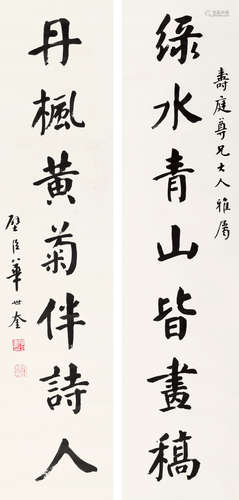 壽庭尊兄大人雅屬
綠水青山皆畫稿
丹楓黃菊伴詩人
壁臣華世奎